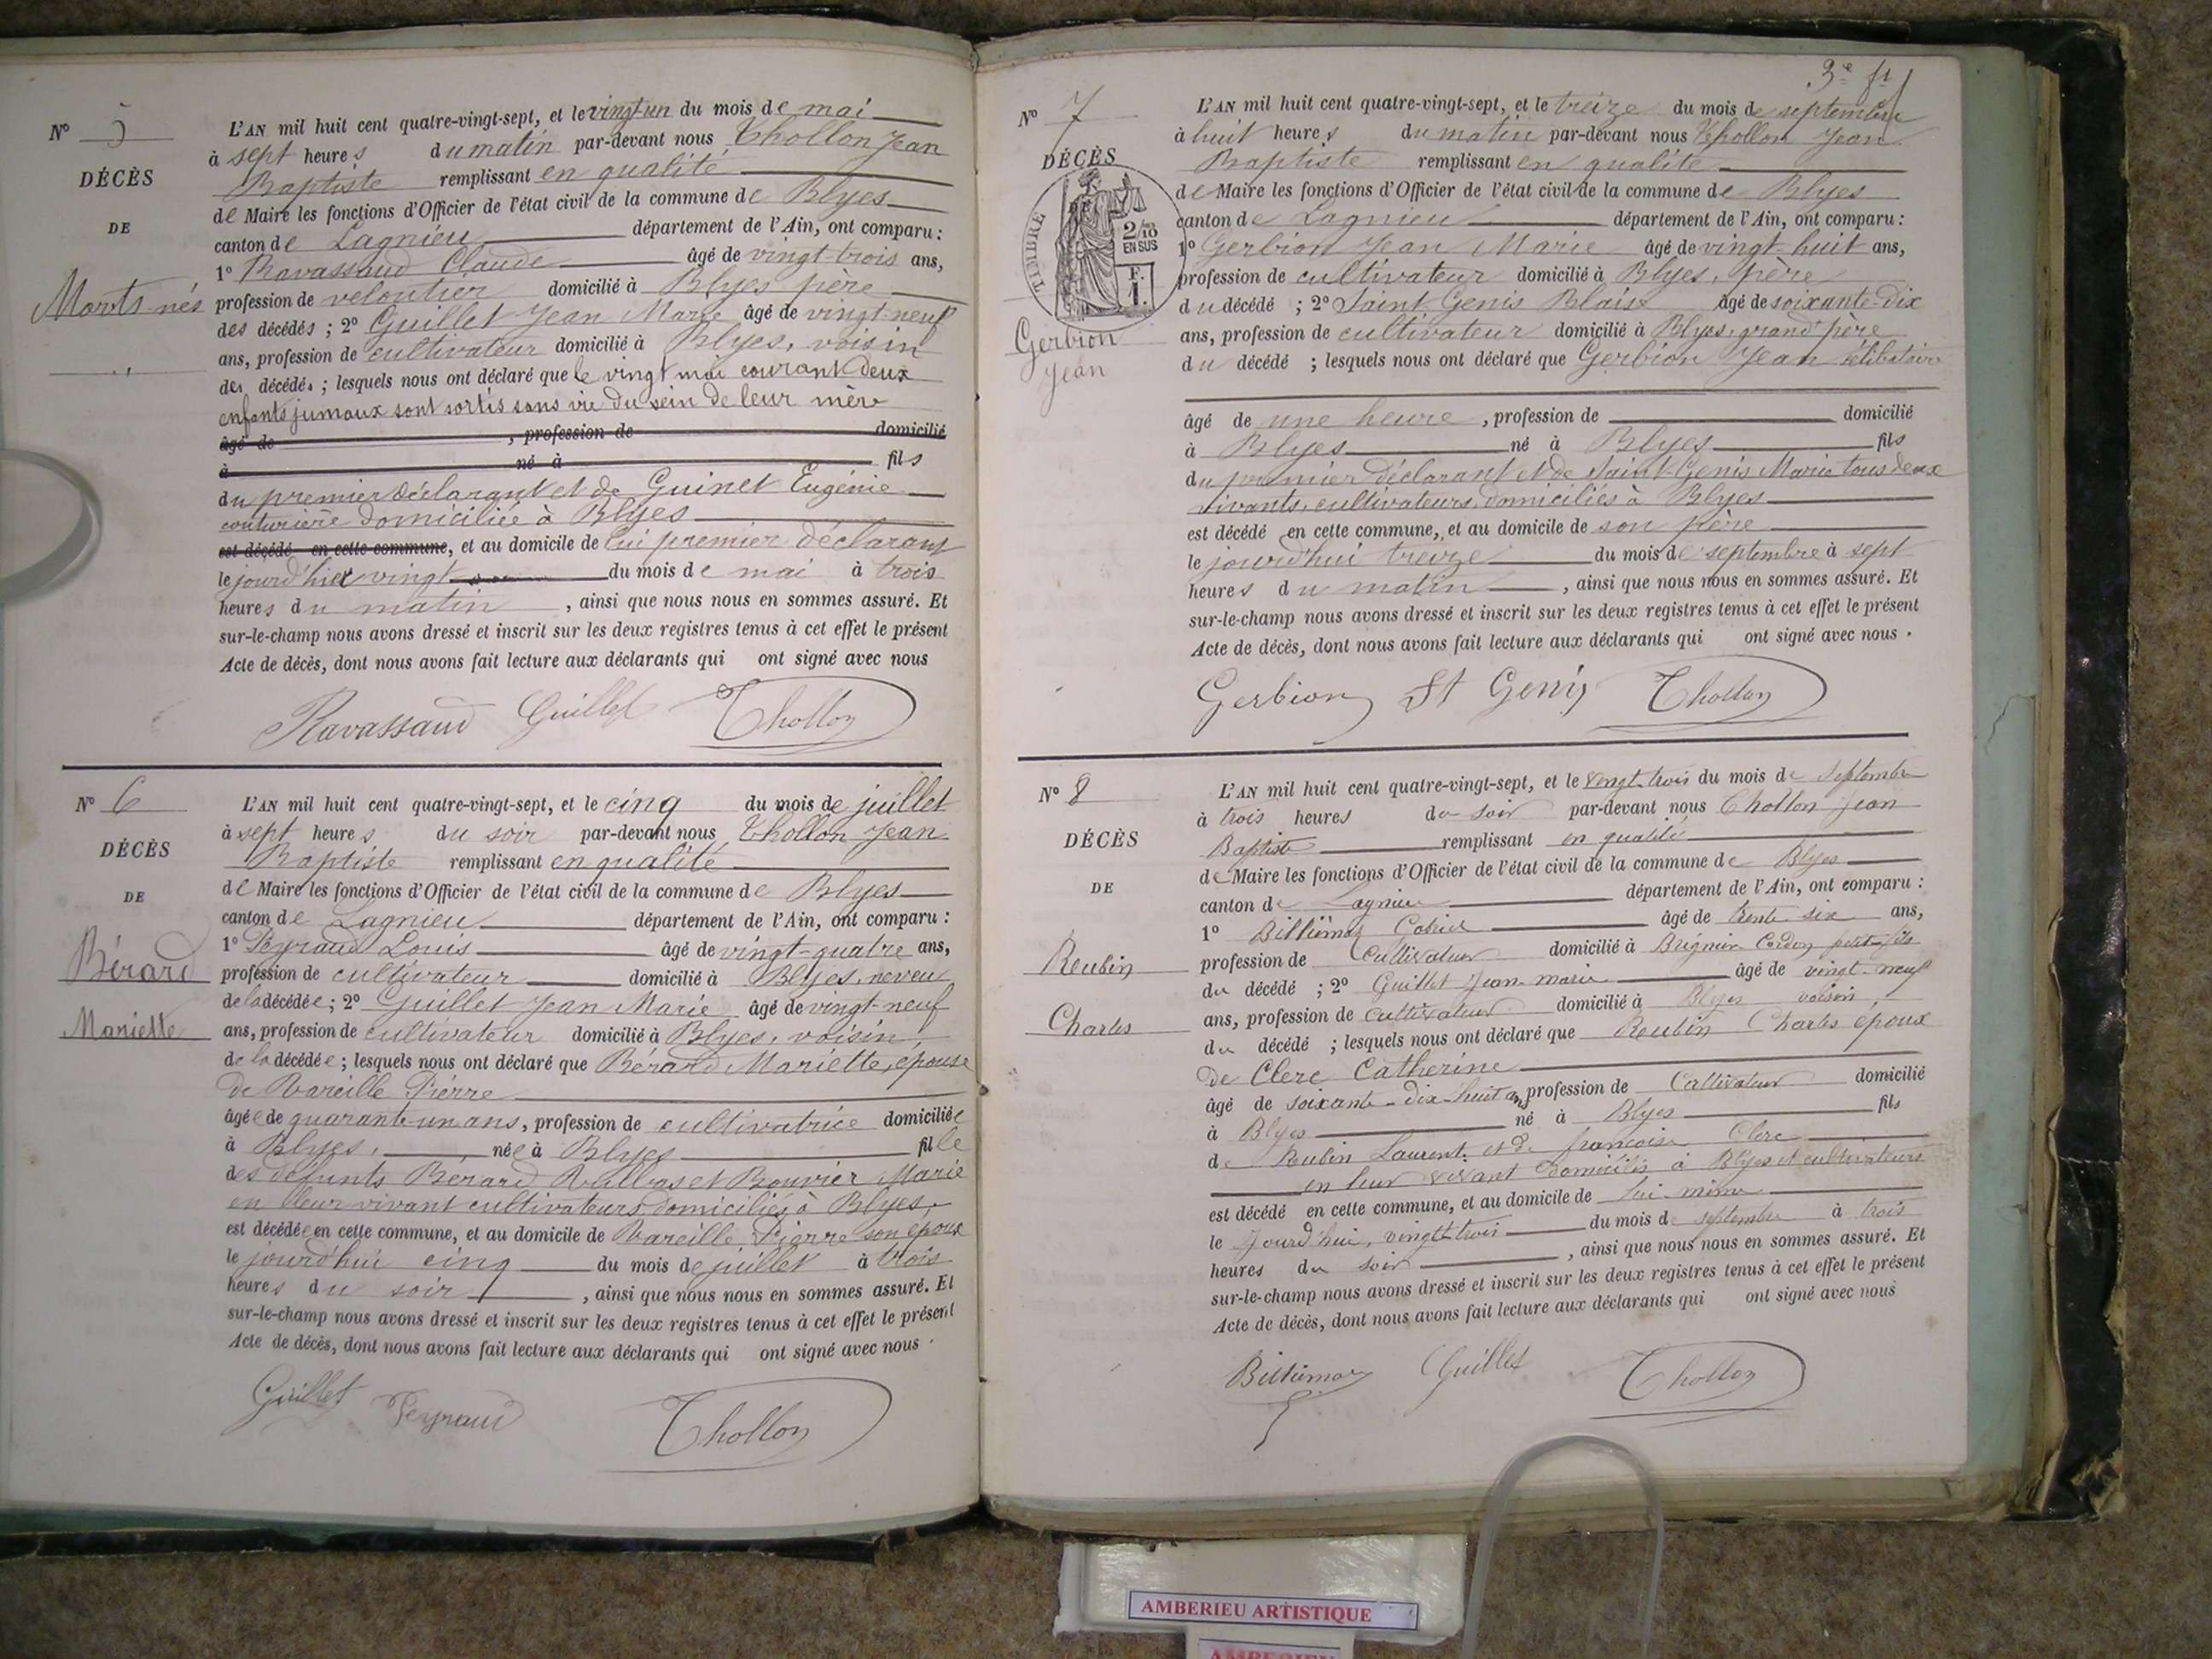 N° 5
DÉCÈS
DE
Morts-nés
L'AN mil huit cent quatre-vingt-sept, et le vingt-un du mois de mai
à sept heures du matin par-devant nous Chollon Jean
Baptiste remplissant en qualité
de Maire les fonctions d'Officier de l'état civil de la commune de Blyes
canton de Lagnieu département de l'Ain, ont comparu :
1° Ravassaud Claude âgé de vingt-trois ans,
profession de veloutier domicilié à Blyes père
des décédés ; 2° Guillet Jean Marie âgé de vingt-neuf
ans, profession de cultivateur domicilié à Blyes, voisin
des décédés ; lesquels nous ont déclaré que le vingt mai courant deux
enfants jumaux sont sortis sans vie du sein de leur mère
âgé de , profession de domicilié
à né à fils
du premier déclarant et de Guinet Eugénie
couturière domiciliée à Blyes
est décédé en cette commune, et au domicile de lui premier déclarant
le jourd'hier vingt du mois de mai à trois
heures du matin , ainsi que nous nous en sommes assuré. Et
sur-le-champ nous avons dressé et inscrit sur les deux registres tenus à cet effet le présent
Acte de décès, dont nous avons fait lecture aux déclarants qui ont signé avec nous
Ravassaud Guillet Chollon
N° 6
DÉCÈS
DE
Bérard
Mariette
L'AN mil huit cent quatre-vingt-sept, et le cinq du mois de juillet
à sept heures du soir par-devant nous Chollon Jean
Baptiste remplissant en qualité
de Maire les fonctions d'Officier de l'état civil de la commune de Blyes
canton de Lagnieu département de l'Ain, ont comparu :
1° Peyraud Louis âgé de vingt-quatre ans,
profession de cultivateur domicilié à Blyes, neveu
de la décédée ; 2° Guillet Jean Marie âgé de vingt-neuf
ans, profession de cultivateur domicilié à Blyes, voisin
de la décédée ; lesquels nous ont déclaré que Bérard Mariette, épouse
de Vareille Pierre
âgée de quarante-un ans, profession de cultivatrice domiciliée
à Blyes, née à Blyes fille
des défunts Bérard et Bouvier Marie
en leur vivant cultivateurs domiciliés à Blyes,
est décédée en cette commune, et au domicile de Vareille Pierre son époux
le jourd'hui cinq du mois de juillet à trois
heures du soir , ainsi que nous nous en sommes assuré. Et
sur-le-champ nous avons dressé et inscrit sur les deux registres tenus à cet effet le présent
Acte de décès, dont nous avons fait lecture aux déclarants qui ont signé avec nous
Guillet Peyraud Chollon
3e ft
N° 7
DÉCÈS
TIMBRE
2/10
EN SUS
F.
1.
Gerbion
Jean
L'AN mil huit cent quatre-vingt-sept, et le treize du mois de septembre
à huit heures du matin par-devant nous Chollon Jean
Baptiste remplissant en qualité
de Maire les fonctions d'Officier de l'état civil de la commune de Blyes
canton de Lagnieu département de l'Ain, ont comparu :
1° Gerbion Jean Marie âgé de vingt-huit ans,
profession de cultivateur domicilié à Blyes, père
du décédé ; 2° Saint Genis Blaise âgé de soixante-dix
ans, profession de cultivateur domicilié à Blyes, grand'père
du décédé ; lesquels nous ont déclaré que Gerbion Jean célibataire
âgé de une heure, profession de domicilié
à Blyes né à Blyes fils
du premier déclarant et de Saint Genis Marie tous deux
vivants, cultivateurs, domiciliés à Blyes
est décédé en cette commune, et au domicile de son père
le jourd'hui treize du mois de septembre à sept
heures du matin , ainsi que nous nous en sommes assuré. Et
sur-le-champ nous avons dressé et inscrit sur les deux registres tenus à cet effet le présent
Acte de décès, dont nous avons fait lecture aux déclarants qui ont signé avec nous.
Gerbion St Genis Chollon
N° 8
DÉCÈS
DE
Reubin
Charles
L'AN mil huit cent quatre-vingt-sept, et le vingt-trois du mois de septembre
à trois heures du soir par-devant nous Chollon Jean
Baptiste remplissant en qualité
de Maire les fonctions d'Officier de l'état civil de la commune de Blyes
canton de Lagnieu département de l'Ain, ont comparu :
1° Billiemaz âgé de trente-six ans,
profession de cultivateur domicilié à Brégnier Cordon petit-fils
du décédé ; 2° Guillet Jean-marie âgé de vingt-neuf
ans, profession de cultivateur domicilié à Blyes voisin
du décédé ; lesquels nous ont déclaré que Reubin Charles époux
de Clerc Catherine
âgé de soixante-dix-huit ans, profession de Cultivateur domicilié
à Blyes né à Blyes fils
de Reubin Laurent et de françoise Clerc
en leur vivant domiciliés à Blyes et cultivateurs
est décédé en cette commune, et au domicile de lui-même
le jourd'hui, vingt-trois du mois de septembre à trois
heures du soir , ainsi que nous nous en sommes assuré. Et
sur-le-champ nous avons dressé et inscrit sur les deux registres tenus à cet effet le présent
Acte de décès, dont nous avons fait lecture aux déclarants qui ont signé avec nous
Billiemaz Guillet Chollon
AMBERIEU ARTISTIQUE
AMBERIEU